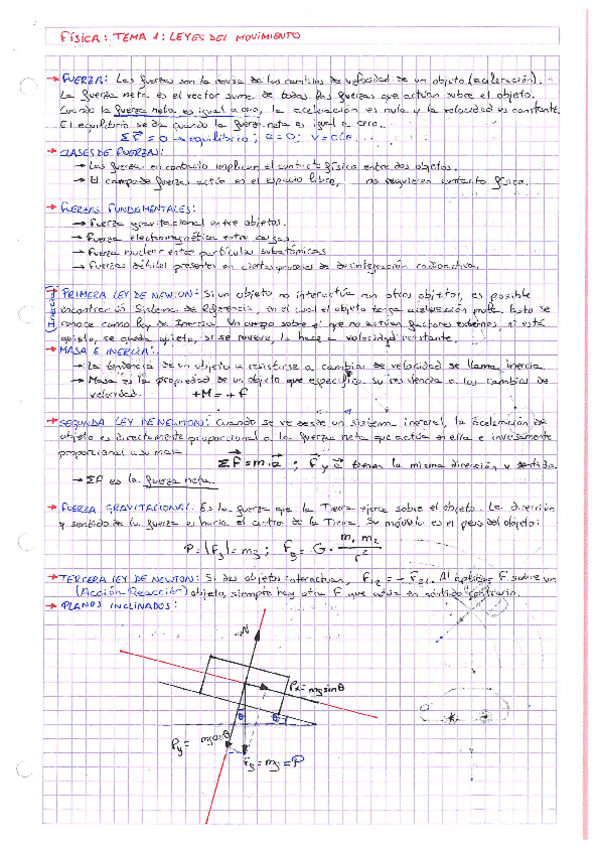 FÍSICA: TEMA 1: LEYES DEL MOVIMIENTO
→ FUERZA: Las fuerzas son la causa de los cambios de velocidad de un objeto (aceleración).
La fuerza neta es el vector suma de todas las fuerzas que actúan sobre el objeto.
Cuando la fuerza neta es igual a cero, la aceleración es nula y la velocidad es constante.
El equilibrio se da cuando la fuerza neta es igual a cero.
ΣF⃗ = 0 → equilibrio ; a = 0 ; v = cte.
→ CLASES DE FUERZAS:
→ Las fuerzas en contacto implican el contacto físico entre dos objetos.
→ El campo de fuerzas actúa en el espacio libre, no requieren contacto físico.
→ FUERZAS FUNDAMENTALES:
→ Fuerza gravitacional entre objetos.
→ Fuerza electromagnética entre cargas.
→ Fuerza nuclear entre partículas subatómicas
→ Fuerzas débiles presentes en ciertos procesos de desintegración radioactiva.
(Inercia)
→ PRIMERA LEY DE NEWTON: Si un objeto no interactúa con otros objetos, es posible
encontrar un Sistema de Referencia, en el cual el objeto tenga aceleración nula. Esto se
conoce como Ley de Inercia. Un cuerpo sobre el que no actúan factores externos, si está
quieto, se queda quieto, si se mueve, lo hace a velocidad constante.
→ MASA E INERCIA:
→ La tendencia de un objeto a resistirse a cambios de velocidad se llama inercia
→ Masa es la propiedad de un objeto que especifica su resistencia a los cambios de
velocidad. +M = +F
→ SEGUNDA LEY DE NEWTON: Cuando se ve desde un sistema inercial, la aceleración de
objeto es directamente proporcional a la fuerza neta que actúa en ella e inversamente
proporcional a su masa ΣF⃗ = m·a⃗ ; F⃗ y a⃗ tienen la misma dirección y sentido.
→ ΣF es la fuerza neta.
→ FUERZA GRAVITACIONAL: Es la fuerza que la Tierra ejerce sobre el objeto. La dirección
y sentido de la fuerza es hacia el centro de la Tierra. Su módulo es el peso del objeto:
P = |Fg| = mg ; Fg = G · m₁ m₂ / r²
→ TERCERA LEY DE NEWTON: Si dos objetos interactúan, F₁₂ = - F₂₁. Al aplicar F sobre un
(Acción Reacción) objeto, siempre hay otra F que actúa en sentido contrario.
→ PLANOS INCLINADOS:
N
Px = mg sinθ
θ θ
Py = mg cosθ
Fg = mg = P